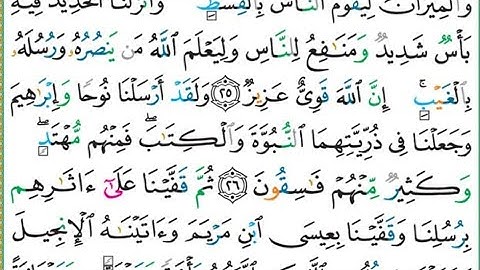 وَالْمِيزَانَ لِيَقُومَ النَّاسُ بِالْقِسْطِ ۖ وَأَنزَلْنَا الْحَدِيدَ فِيهِ
بَأْسٌ شَدِيدٌ وَمَنَافِعُ لِلنَّاسِ وَلِيَعْلَمَ اللَّهُ مَن يَنصُرُهُ وَرُسُلَهُ
بِالْغَيْبِ ۚ إِنَّ اللَّهَ قَوِيٌّ عَزِيزٌ ﴿٢٥﴾ وَلَقَدْ أَرْسَلْنَا نُوحًا وَإِبْرَاهِيمَ
وَجَعَلْنَا فِي ذُرِّيَّتِهِمَا النُّبُوَّةَ وَالْكِتَابَ ۖ فَمِنْهُم مُّهْتَدٍ ۖ
وَكَثِيرٌ مِّنْهُمْ فَاسِقُونَ ﴿٢٦﴾ ثُمَّ قَفَّيْنَا عَلَىٰ ءَاثَارِهِم
بِرُسُلِنَا وَقَفَّيْنَا بِعِيسَى ابْنِ مَرْيَمَ وَءَاتَيْنَاهُ الْإِنجِيلَ